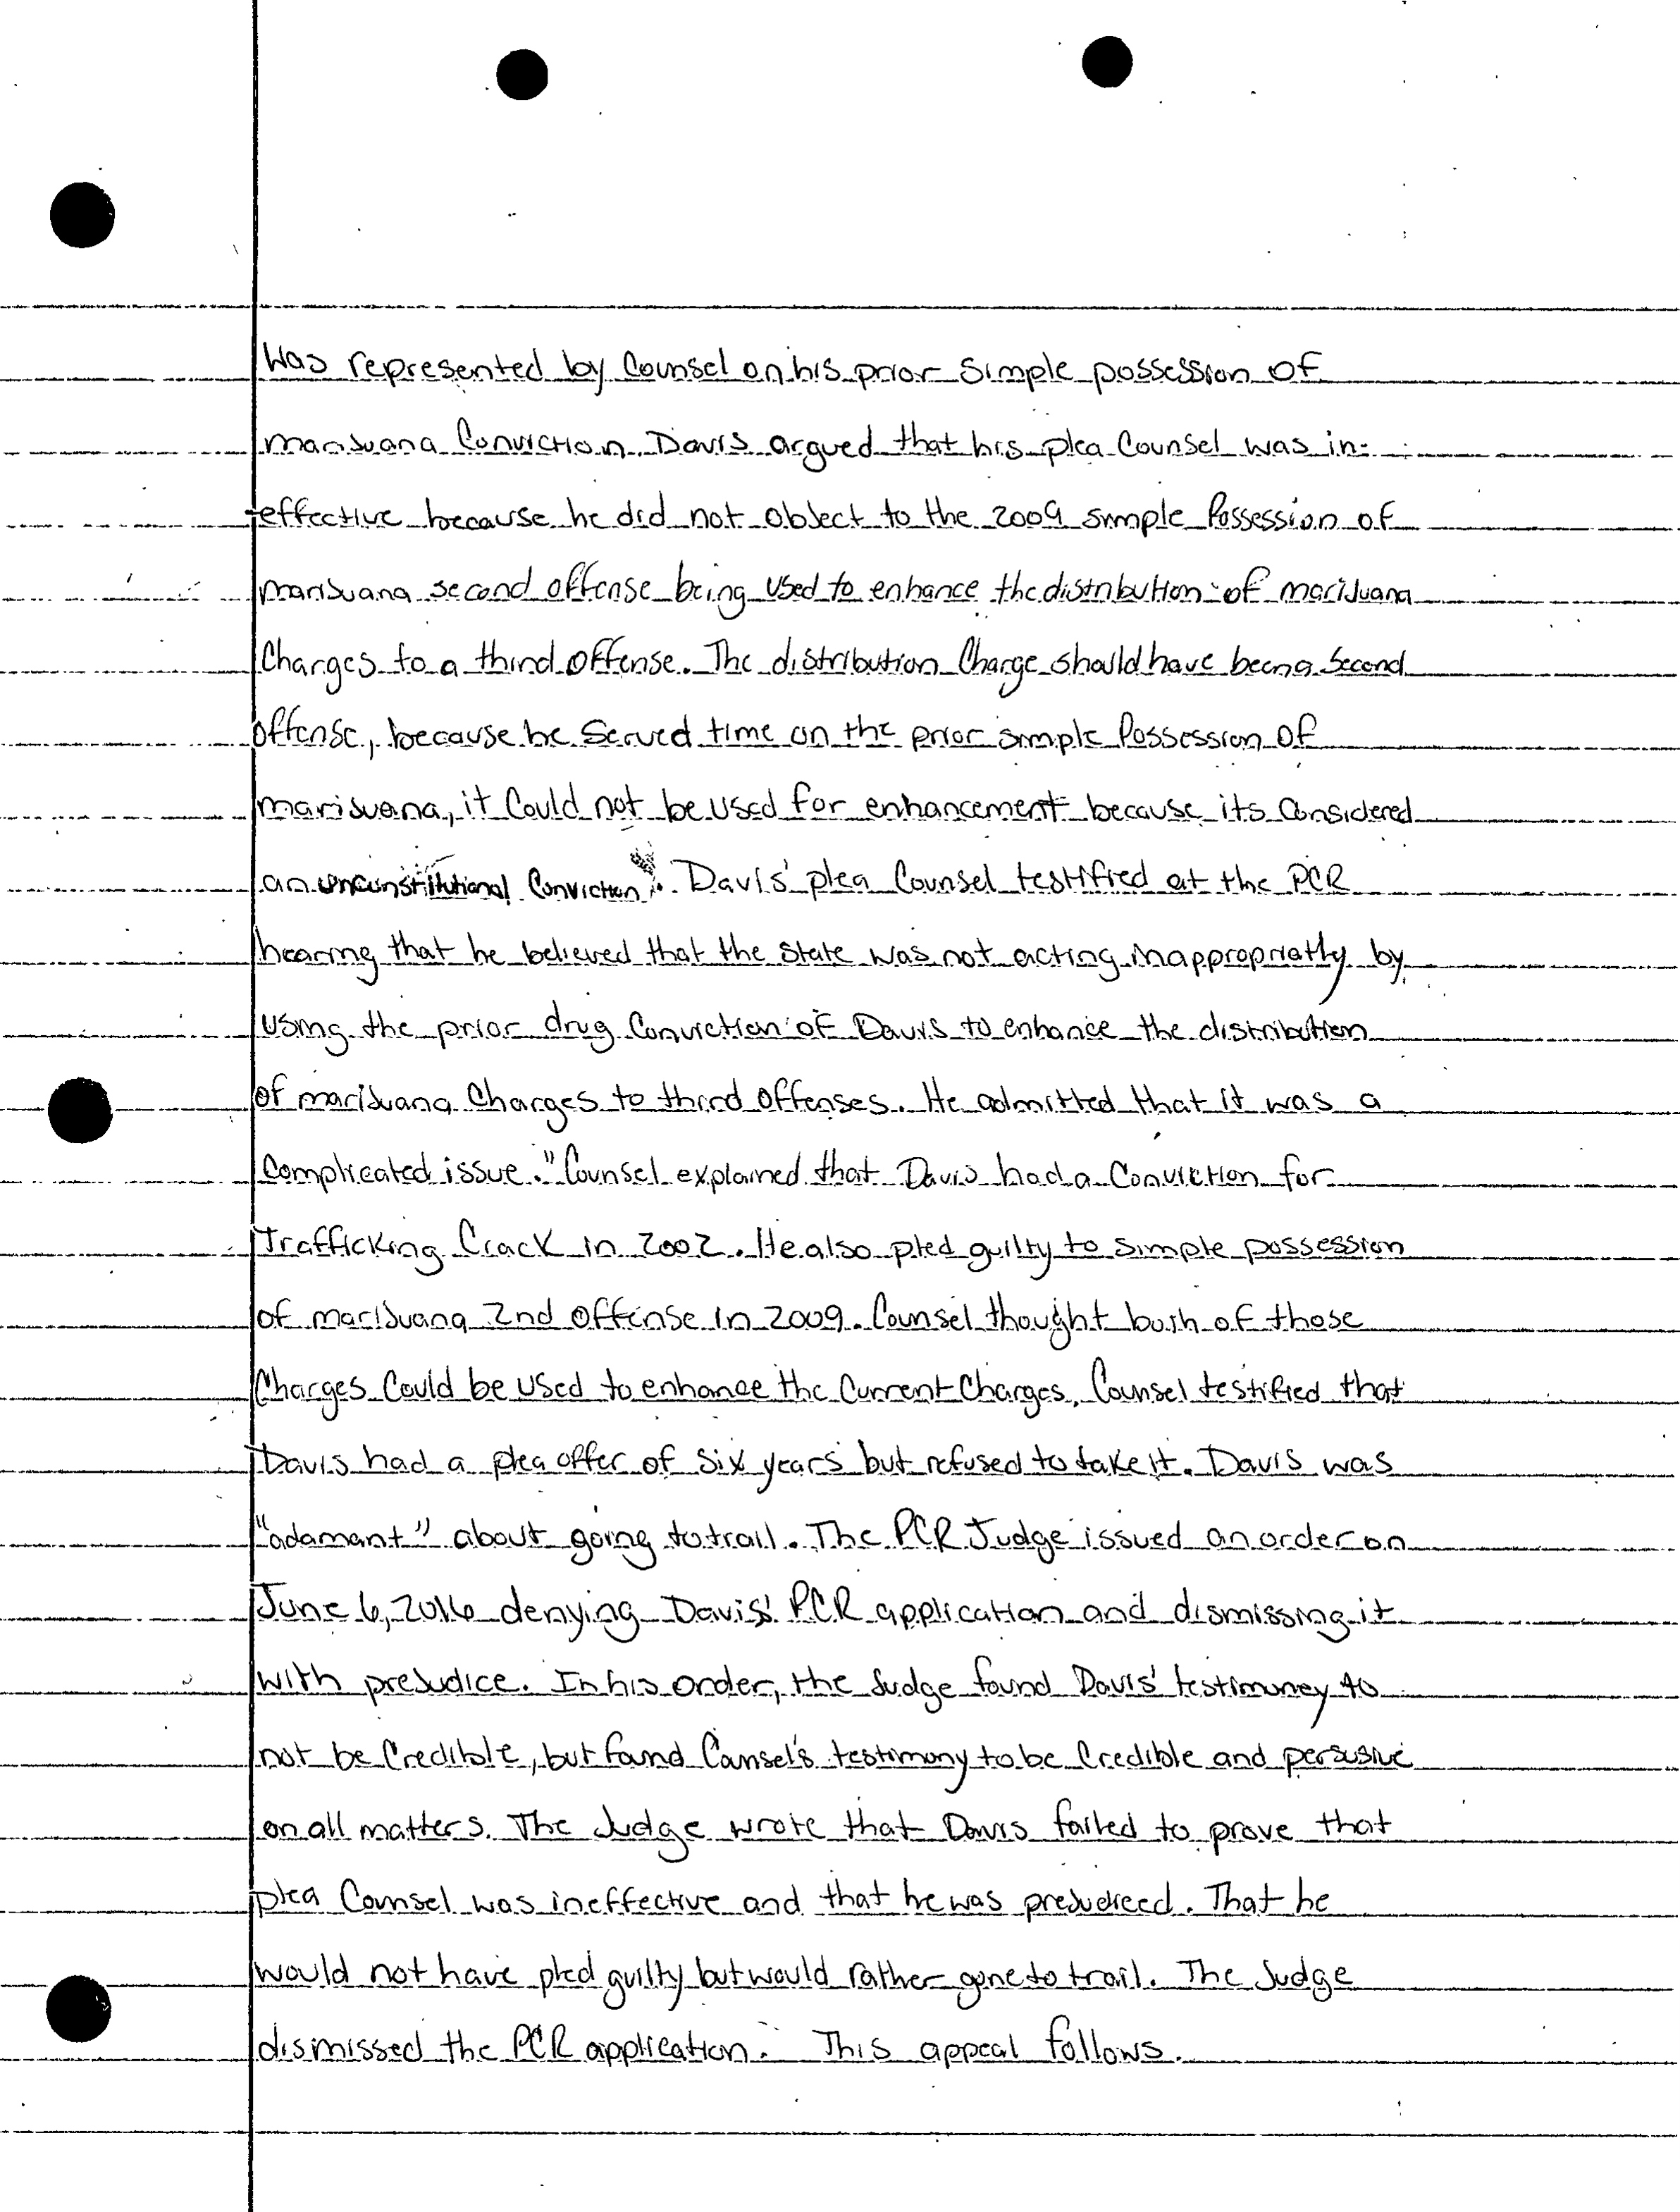 Was represented by Counsel on his prior simple possession of
marijuana Conviction. Davis argued that his plea Counsel was in-
effective because he did not object to the 2009 simple Possession of
marijuana second offense being used to enhance the distribution of marijuana
Charges to a third offense. The distribution Charge should have been a Second
offense, because he Served time on the prior simple Possession of
marijuana, it Could not be used for enhancement because its Considered
an unconstitutional Conviction. Davis' plea Counsel testified at the PCR
hearing that he believed that the State was not acting inappropriatly by
using the prior drug Conviction of Davis to enhance the distribution
of marijuana Charges to third offenses. He admitted that it was a
Complicated issue." Counsel explained that Davis had a Conviction for
Trafficking Crack in 2002. He also pled guilty to simple possession
of marijuana 2nd offense in 2009. Counsel thought both of those
Charges Could be used to enhance the Current Charges. Counsel testified that
Davis had a plea offer of six years but refused to take it. Davis was
"adamant" about going to trail. The PCR Judge issued an order on
June 6, 2016 denying Davis' PCR application and dismissing it
with prejudice. In his order, the Judge found Davis' testimoney to
not be Credible, but found Counsel's testimony to be Credible and persusive
on all matters. The Judge wrote that Davis failed to prove that
plea Counsel was ineffective and that he was prejudiced. That he
would not have pled guilty but would rather gone to trail. The Judge
dismissed the PCR application. This appeal follows.